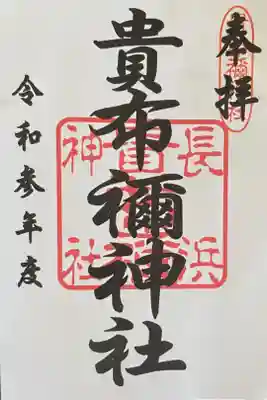 奉拝
貴布禰神社
令和参年度
長浜
神社